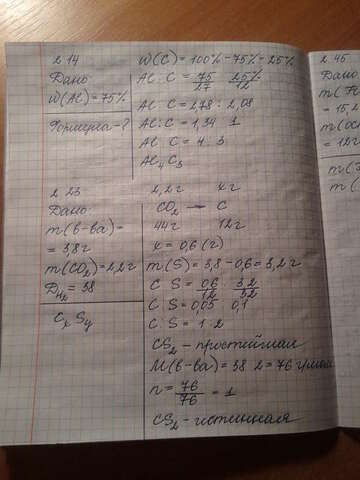 2 14
Дано
W(Al)=75%
Формула-?
W(C)=100%-75%=25%
Al:C=75/27 25%/12
Al C=2,78:2,08
Al:C=1,34 1
Al C=4 3
Al4C3
2 23
Дано
m(в-ва)=
=3,8г
m(CO2)=2,2г
DH2=38
CxSy
2,2г xг
CO2 → C
44г 12г
x=0,6(г)
m(S)=3,8-0,6=3,2г
C S=0,6/12 3,2/32
C S=0,05 0,1
C S=1 2
CS2-простейшая
M(в-ва)=38 2=76 г/моль
n=76/76=1
CS2-истинная
2 45
Дано
=15,2
=12г